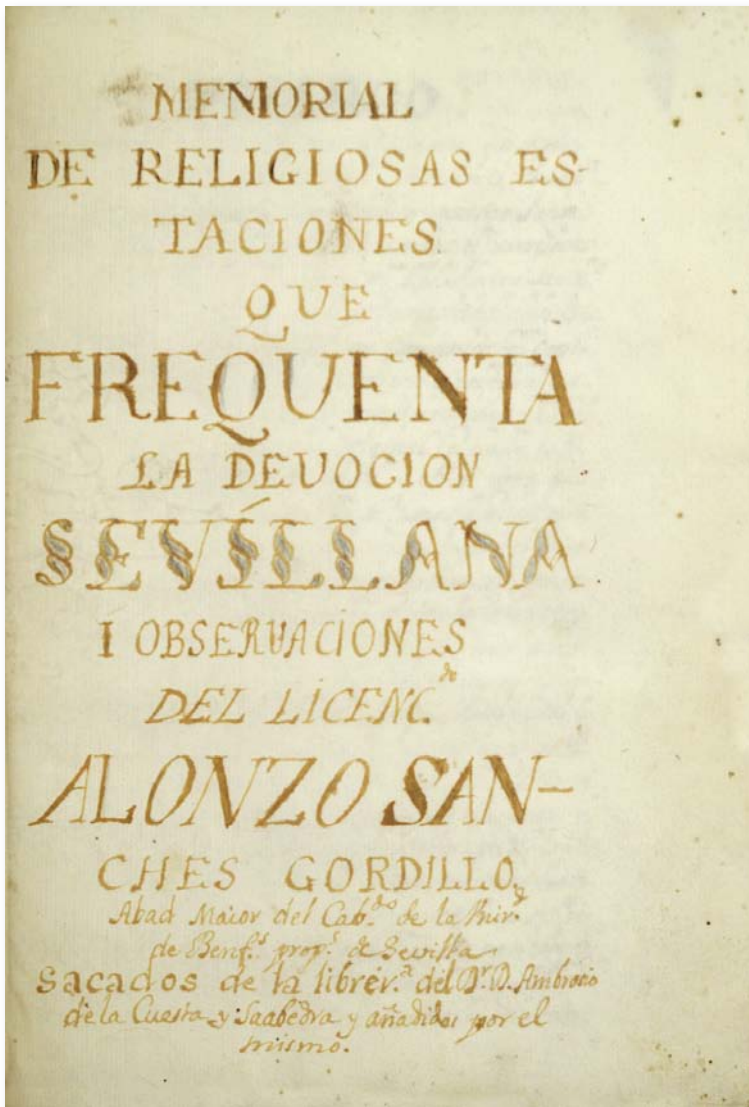 MEMORIAL
DE RELIGIOSAS ES-
TACIONES
QUE
FREQUENTA
LA DEVOCION
SEVÍLLANA
I OBSERVACIONES
DEL LICENC.do
ALONZO SAN-
CHES GORDILLO,
Abad Maior del Cab.do de la Vnir.d
de Benf.s prop.s de Sevilla
Sacados de la librer.a del Dr. D. Ambrocio
de la Cuesta y Saabedra y añadidos por el
mismo.